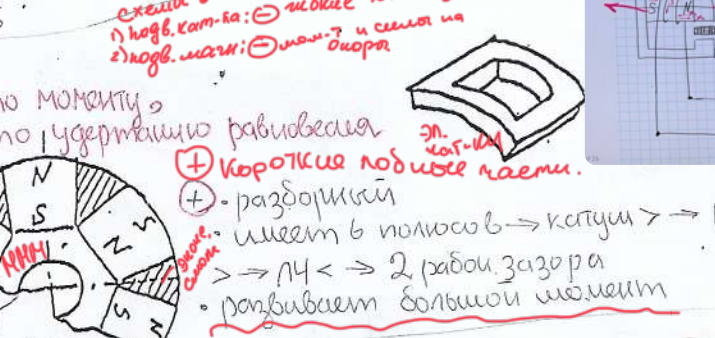 схемы
1) подв. кат-ка: ⊖ жёсткие
2) подв. магн: ⊖ мом-т и силы на
опоры
S N
по моменту,
по удержанию равновесия
эл.
кат-ки
⊕ короткие лобные части.
⊕ • разборный
• имеет 6 полюсов → катуш > →
> → ЛЧ < → 2 рабоч. зазора
• развивает большой момент
N
S
S
N
S
N
МММ
эпокс.
смола